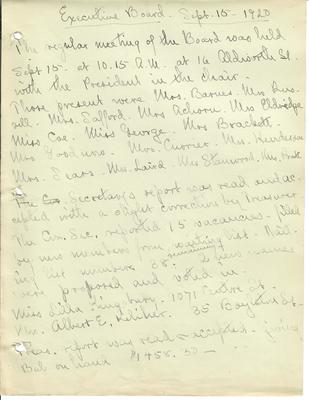 Executive Board. Sept. 15 - 1920
The regular meeting of the Board was held
Sept 15. at 10.15 A.M. at 16 Aldworth St.
with the President in the chair.
Those present were Mrs. Barnes. Mrs Rus-
sell. Mrs. Safford. Mrs Achorn. Mrs Eldridge
Miss Coe. Miss George. Mrs Brackett.
Mrs Goodnow. Mrs. Mrs. Henderson
Mrs. Sears. Mrs. Laird. Mrs Stanwood. Mrs.
The Secretary's report was read and ac-
cepted with a slight correction by Treasurer
The Cor. Sec. reported 15 vacancies. filled
by new members from waiting list. Wait-
ing list numbers 38. 2 new names
were proposed and voted in.
Miss Lilla Kingsbury. 1071 Centre St.
Mrs. Albert E. Keliher. 35 St.
Treas. report was read & accepted. giving
Bal on hand $1458.50 —